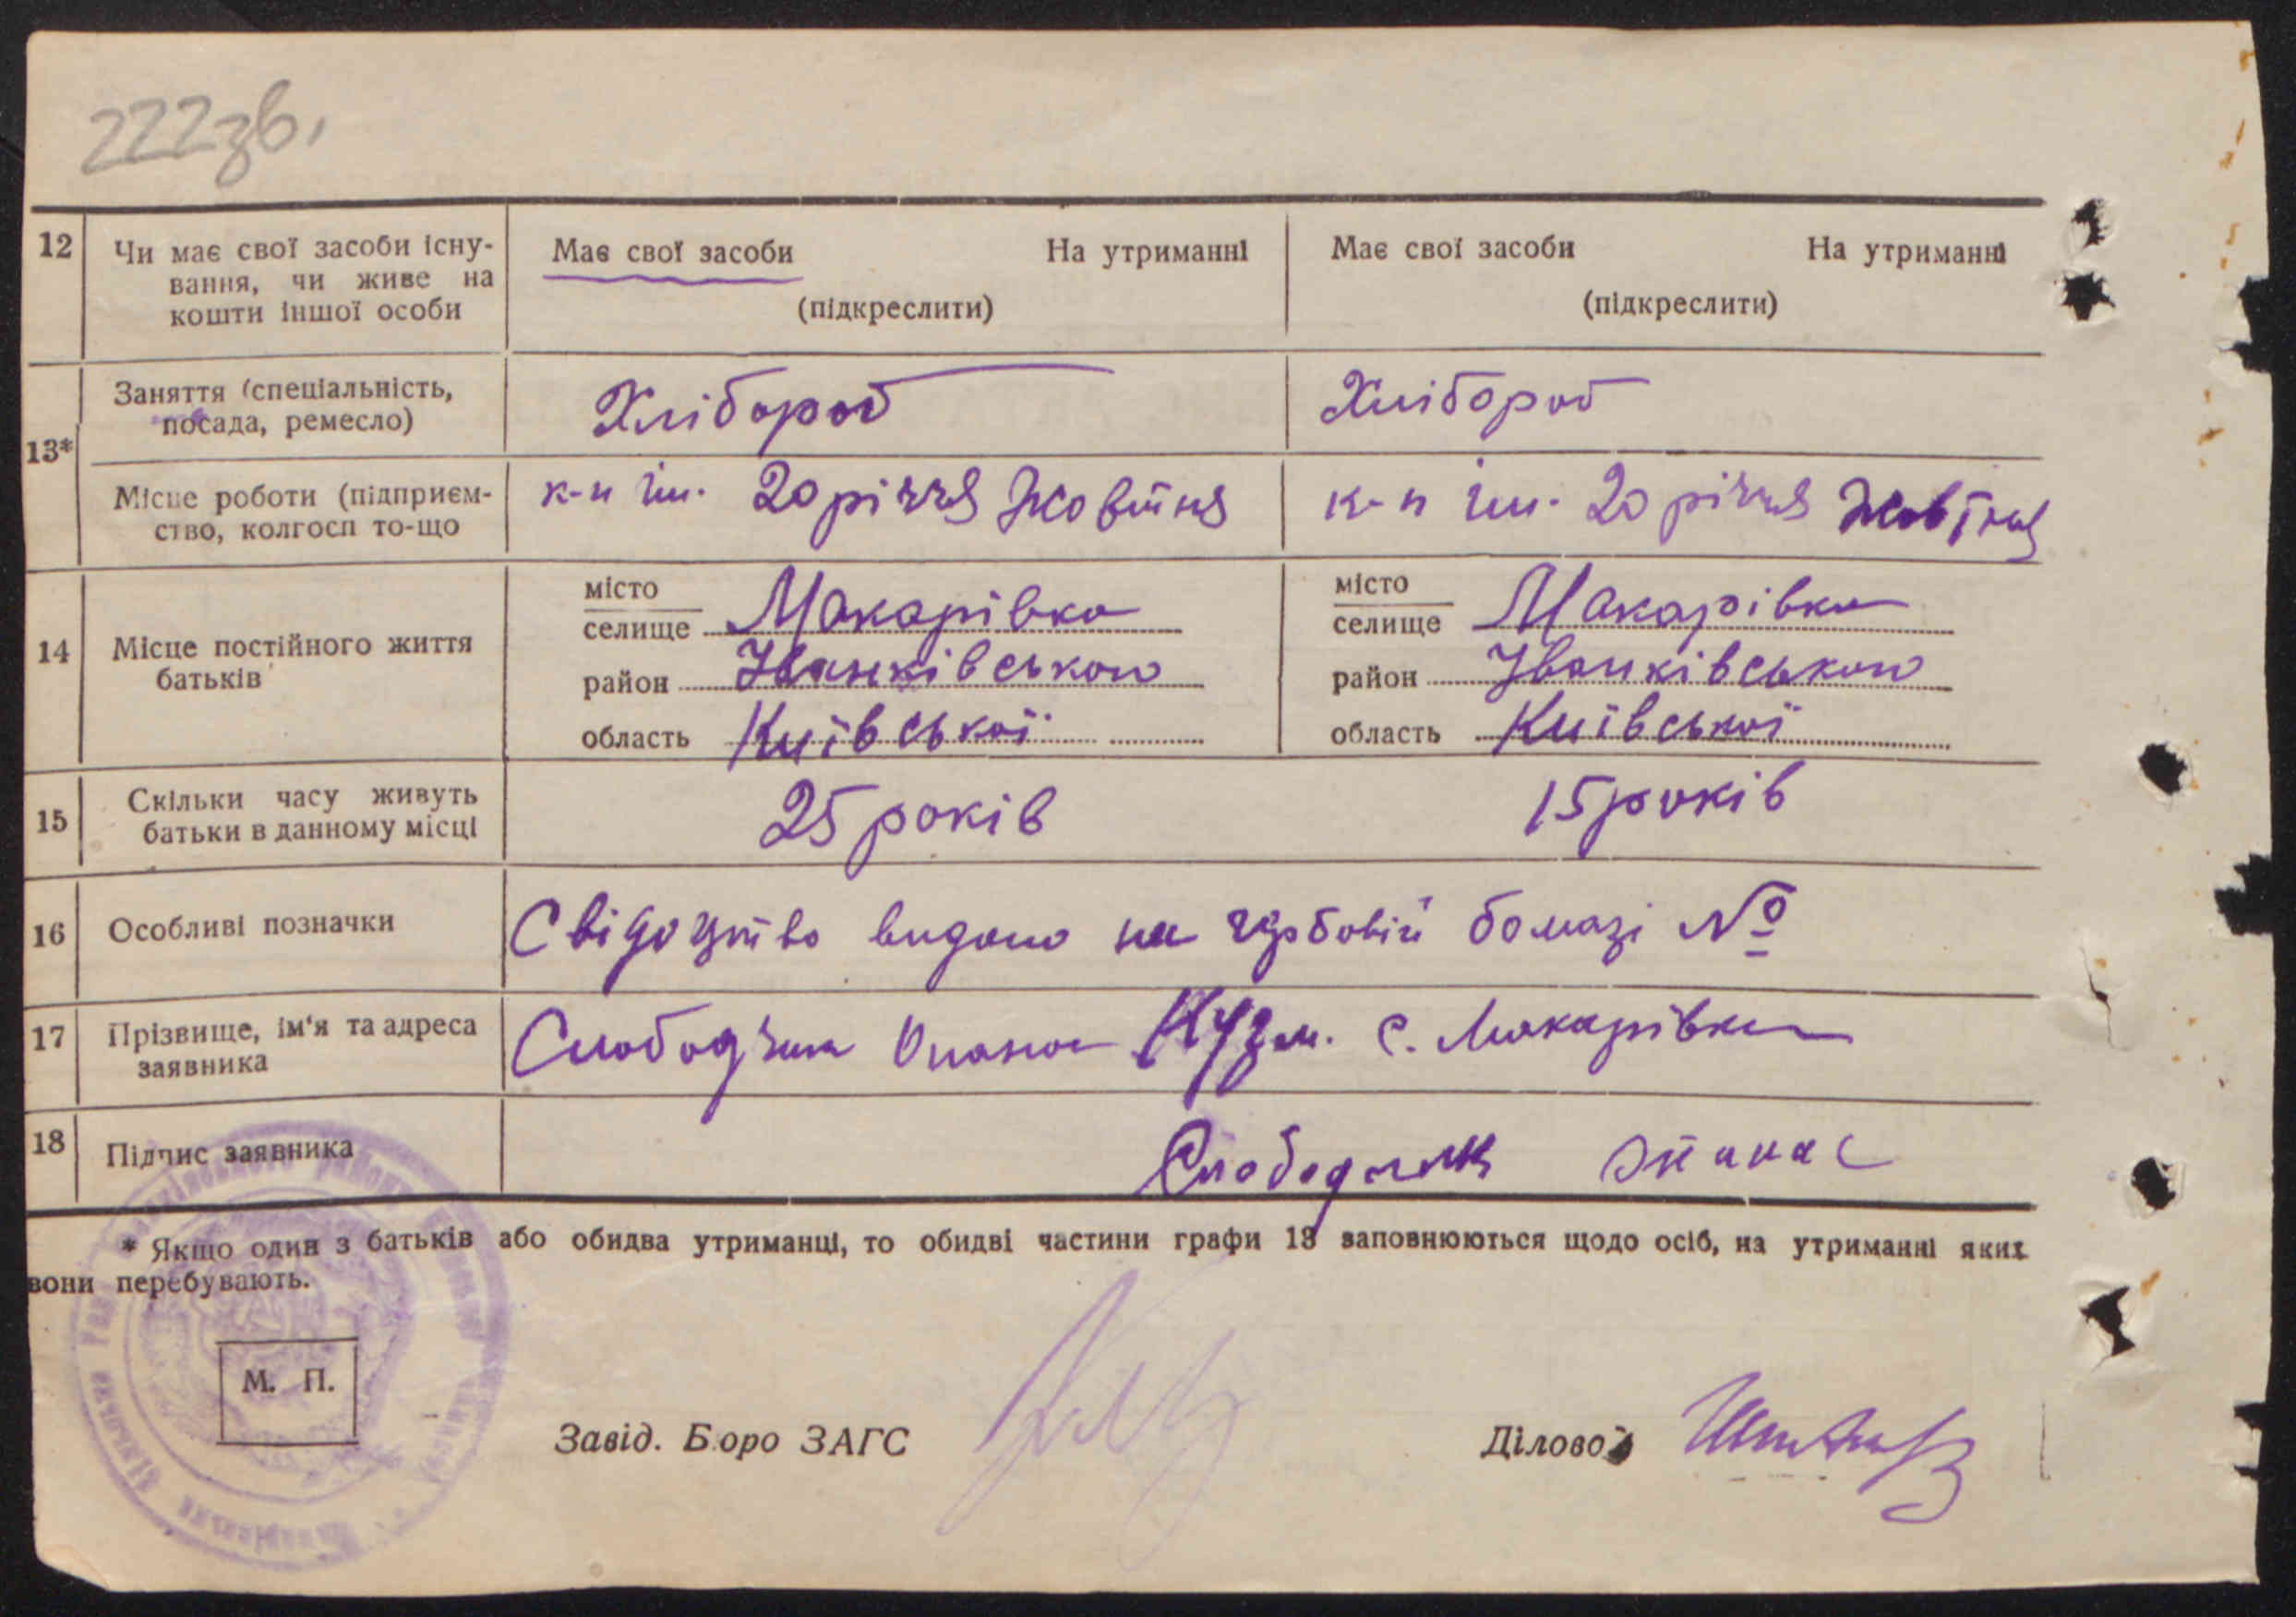 222зв.
12 Чи має свої засоби існу- Має свої засоби На утриманні Має свої засоби На утриманні
вання, чи живе на
кошти іншої особи (підкреслити) (підкреслити)
Заняття (спеціальність, Хлібороб Хлібороб
посада, ремесло)
13*
Місце роботи (підприєм- к-п ім. 20 річчя Жовтня к-п ім. 20 річчя Жовтня
ство, колгосп то-що
місто місто
селище Макарівка селище Макарівка
14 Місце постійного життя
батьків район Іванківського район Іванківського
область Київської область Київської
15 Скільки часу живуть 25 років 15 років
батьки в данному місці
16 Особливі позначки Свідоцтво видано на гербовій бомазі №
17 Прізвище, ім'я та адреса Слободчик Опанас Кузм. с. Макарівка
заявника
18 Підпис заявника Слободчик Опанас
* Якщо один з батьків або обидва утриманці, то обидві частини графи 13 заповнюються щодо осіб, на утриманні яких
вони перебувають.
М. П.
Завід. Бюро ЗАГС Діловод